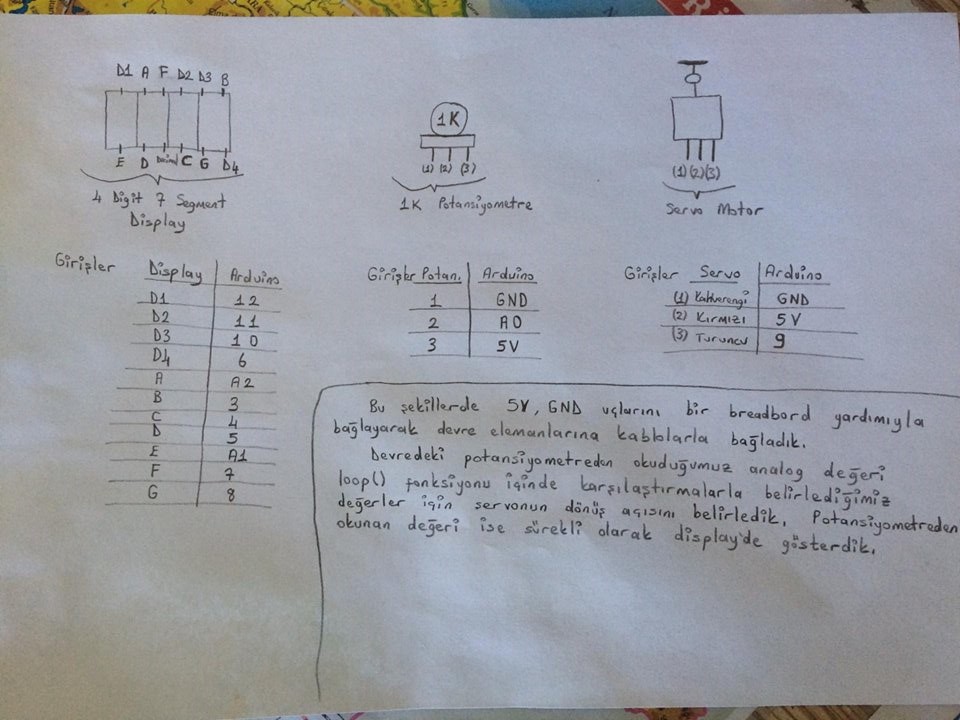 D1 A F D2 D3 B
E D Decimal C G D4
4 Digit 7 Segment
Display
1K
(1) (2) (3)
1K Potansiyometre
(1) (2) (3)
Servo Motor
Girişler Display Arduino
D1 12
D2 11
D3 10
D4 6
A A2
B 3
C 4
D 5
E A1
F 7
G 8
Girişler Potan. Arduino
1 GND
2 A0
3 5V
Girişler Servo Arduino
(1) Kahverengi GND
(2) Kırmızı 5V
(3) Turuncu 9
Bu şekillerde 5V, GND uçlarını bir breadbord yardımıyla
bağlayarak devre elemanlarına kablolarla bağladık.
Devredeki potansiyometreden okuduğumuz analog değeri
loop() fonksiyonu içinde karşılaştırmalarla belirlediğimiz
değerler için servonun dönüş açısını belirledik. Potansiyometreden
okunan değeri ise sürekli olarak display'de gösterdik.